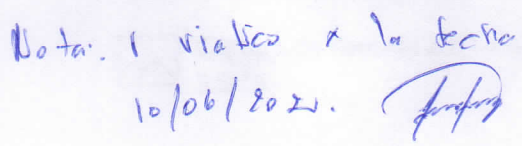 Nota: 1 viatico x la fecha
10/06/202